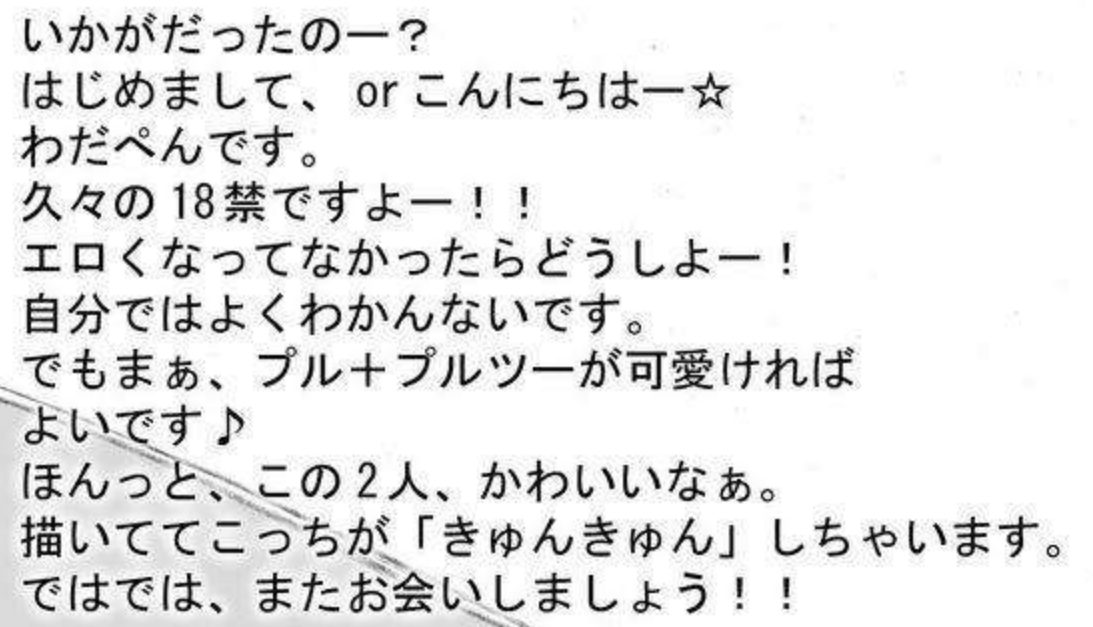 いかがだったのー？
はじめまして、 or こんにちはー☆
わだぺんです。
久々の 18 禁ですよー！！
エロくなってなかったらどうしよー！
自分ではよくわかんないです。
でもまぁ、プル＋プルツーが可愛ければ
よいです♪
ほんっと、この 2 人、かわいいなぁ。
描いててこっちが「きゅんきゅん」しちゃいます。
ではでは、またお会いしましょう！！